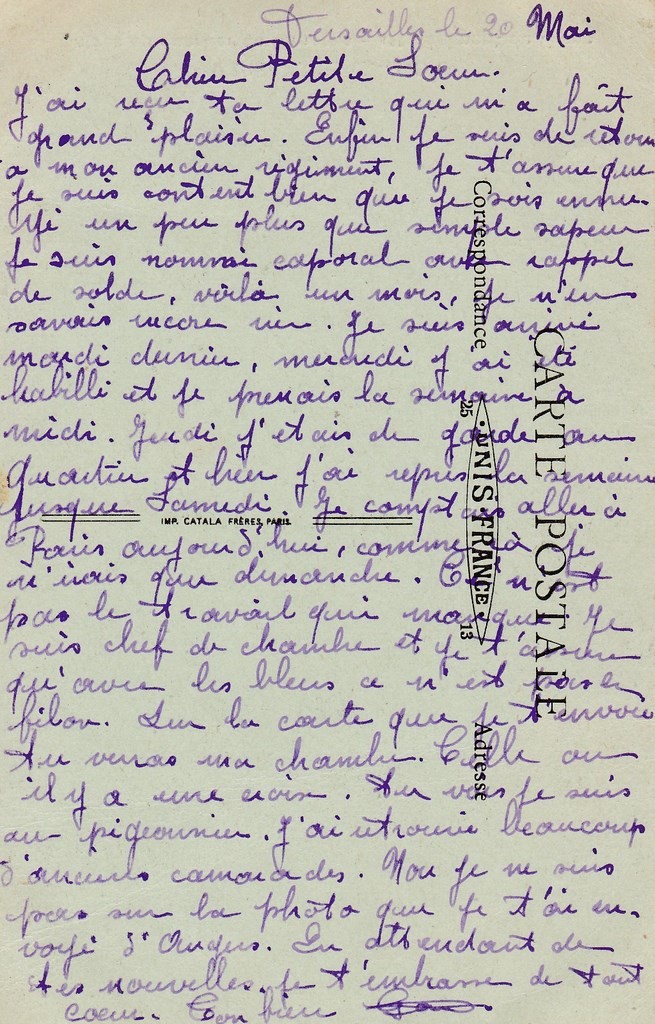 Versailles le 20 Mai
Chère Petite Soeur.
J'ai reçu ta lettre qui m'a fait
grand plaisir. Enfin je suis de retour
a mon ancien régiment, je t'assure que
je suis content bien que je sois ennu-
yé un peu plus que simple sapeur
je suis nommé caporal avec rappel
de solde, voilà un mois, je n'en
savais encore rien. Je suis arrivé
mardi dernier, mercredi j'ai été
habillé et je prenais la semaine à
midi. Jeudi j'etais de garde au
quartier et hier j'ai repris la semaine
jusque Samedi. Je comptais aller à
Paris aujourd'hui, comme je
n'irais que dimanche. Ce n'est
pas le travail qui manque. Je
suis chef de chambre et je t'assure
qu'avec les bleus ce n'est pas le
filon. Sur la carte que je t'envoie
tu verras ma chambre. Celle ou
il y a une croix. Tu vois je suis
au pigeonnier. J'ai retrouvé beaucoup
d'anciens camarades. Non je ne suis
pas sur la photo que je t'ai en-
voyé d'Angers. En attendant de
tes nouvelles, je t'embrasse de tout
coeur. Ton bien
Correspondance
Adresse
CARTE POSTALE
25 · UNIS-FRANCE · 13
IMP. CATALA FRÈRES, PARIS